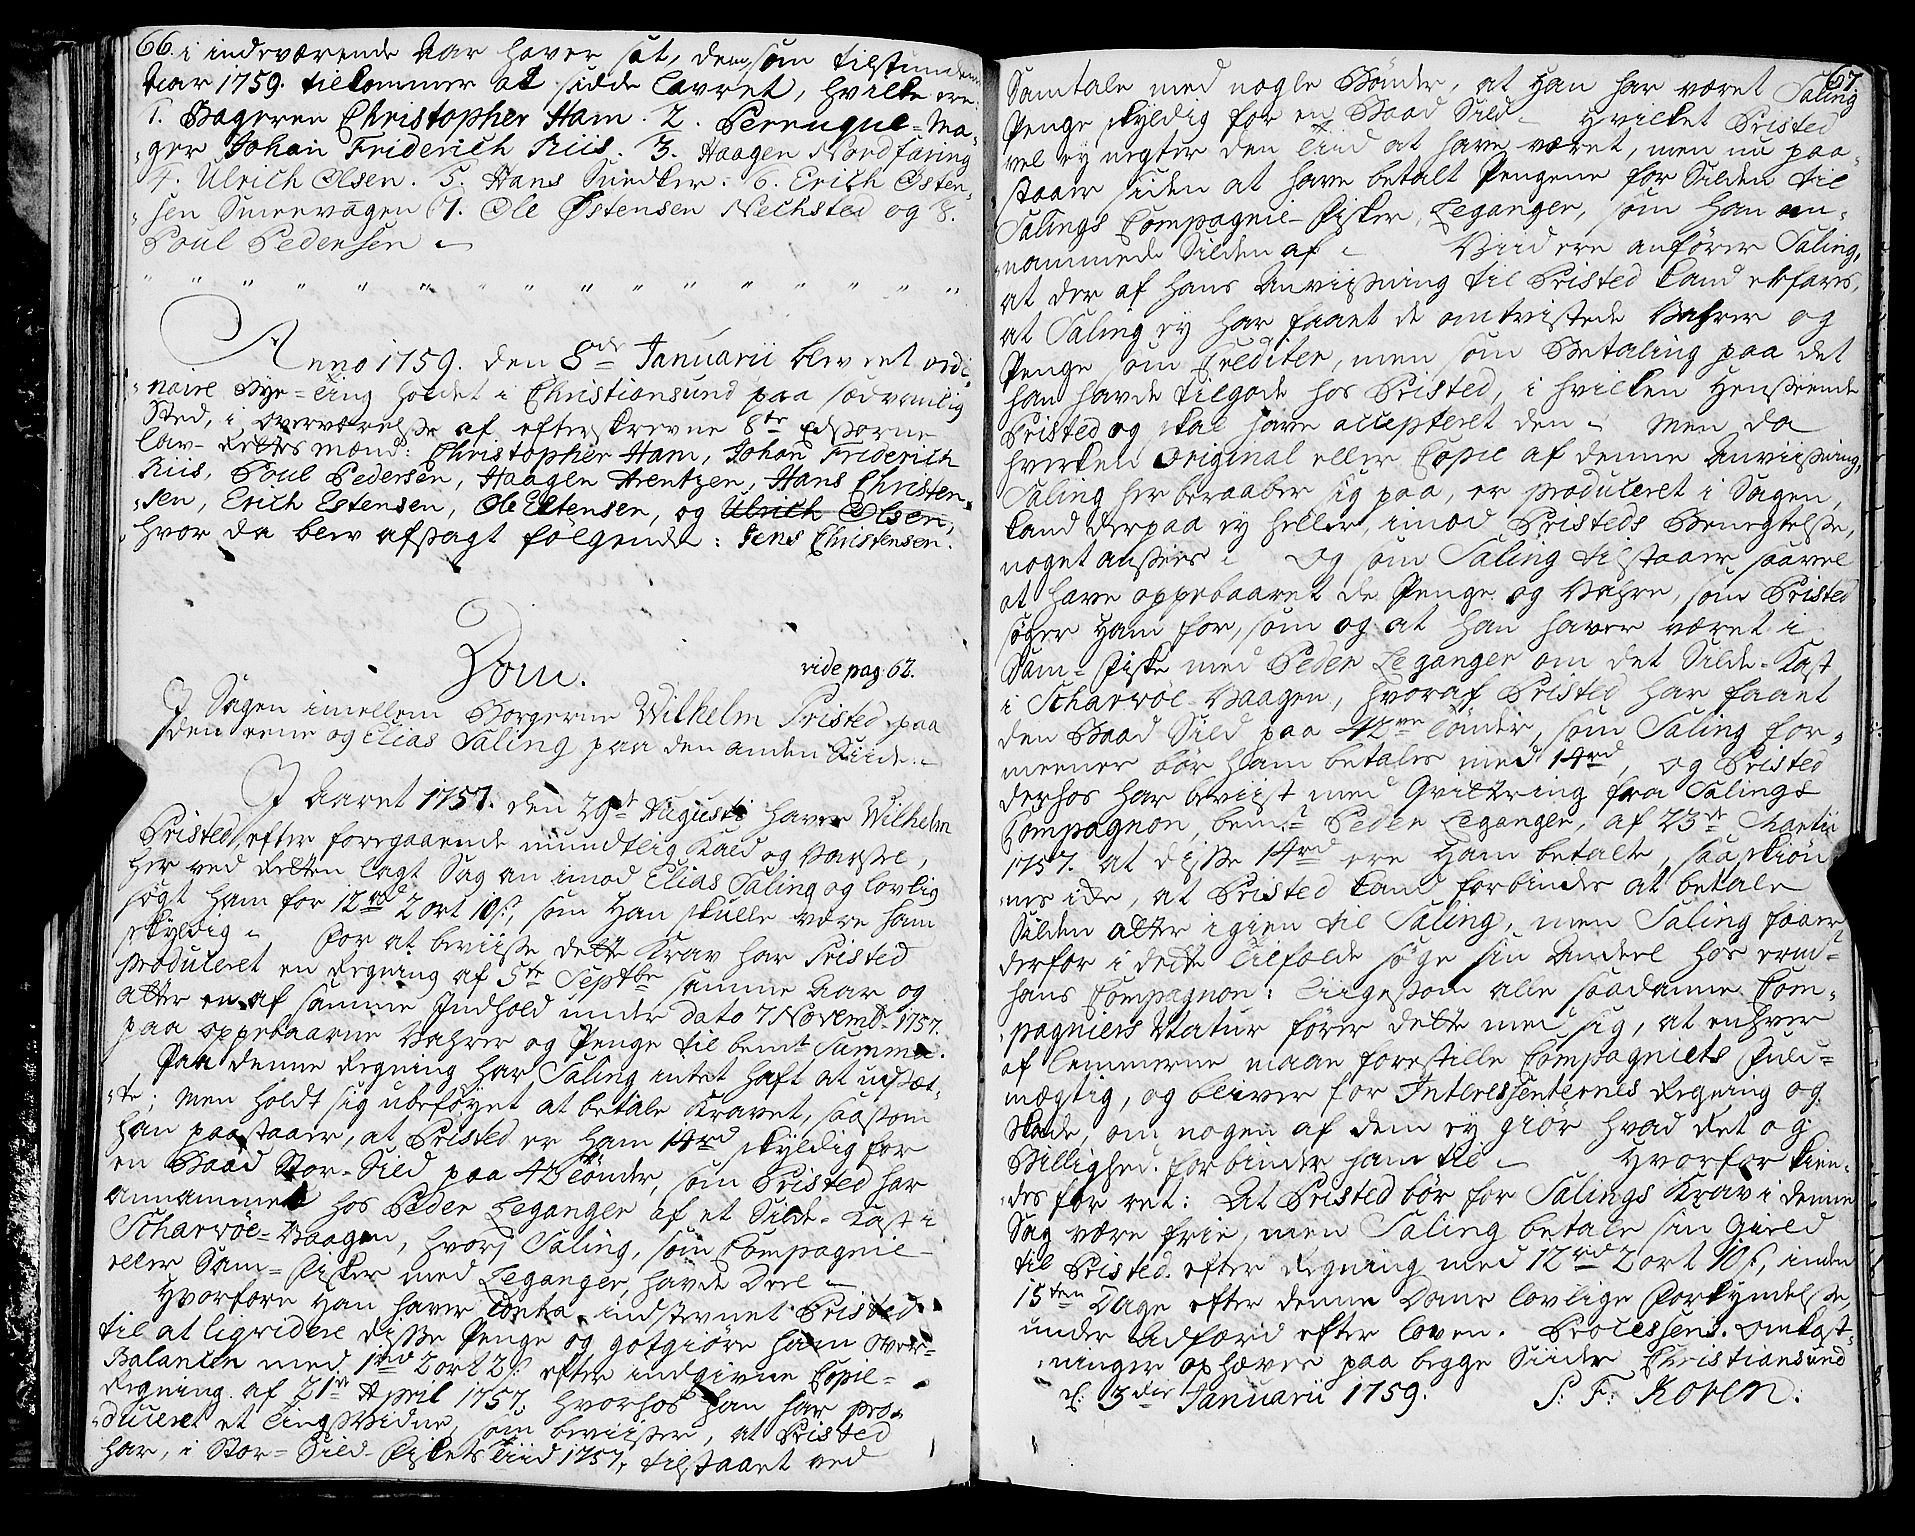 66. i indeværende Aar haver sat, dem, som tilstundende
Aar 1759. tilkommer at sidde Lavret, hvilke ere:
1. Bageren Christopher Ham. 2. Perruque-Ma-
ger Johan Friderich Riis. 3. Haagen Nordfaring
4. Ulrich Olsen. 5. Hans Snedker. 6. Erich Østen-
sen Smeevagen 7. Ole Østensen Nechsted og 8.
Poul Pedersen
Anno 1759. den 8de Januarii blev et ordi-
naire Bye-Ting holdet i Christiansund paa sædvanlig
Sted, i overværelse af efterskrevne 8te Edsorne
Lav-Rettes mænd: Christopher Ham, Johan Friderich
Riis, Poul Pedersen, Haagen Arentzen, Hans Christen-
sen, Erich Estensen, Ole Estensen, og Ulrich Olsen,
hvor da blev afsagt følgende: Jens Christensen.
Dom.
vide pag. 62.
I Sagen imellem Borgerne Wilhelm Pristed paa
den eene og Elias Saling paa den anden Siide.
I Aaret 1757. den 29de Augusti haver Wilhelm
Pristed, efter foregaaende mundtlig Kald og Varsel,
her ved Retten lagt Sag an imod Elias Saling og lovlig
søgt ham for 12 rd 2 ort 10 s, som Han skulle være ham
skyldig. For at beviise dette Krav har Pristed
produceret en Regning af 5te Septbr samme Aar og
atter en af samme Indhold under dato 7 Novemb. 1757.
paa oppebaarne Vahrer og Penge til bemt Summa.
Paa denne Regning har Saling intet haft at udsæt-
te; Men holdt sig ubeføyet at betale Kravet, saasom
han paastaaer, at Pristed er ham 14 rd skyldig for
en Baad Stor-Sild paa 42 Tønder, som Pristed har
annammet hos Peder Leganger af et Silde-Kast i
Scharvøe-Vaagen, hvorj Saling, som Compagnie
eller Sam-Fisker med Leganger, havde Deel
Hvorfore Han haver Contra indstevnet Pristed
til at liqvidere disse Penge og gotgiøre ham Over-
Balancen med 1 rd 2 ort 2 s. efter indgivne Copie-
Regning af 21de April 1757, hvorhos han har pro-
duceret et Tingsvidne, som beviiser, at Pristed
har, i Stor-Sild-Fiskets Tiid 1757, tilstaaet ved
67.
Samtale med nogle Bønder, at Han har været Saling
Penge skyldig for en Baad Sild. Hvilket Pristed
vel ey negter den Tiid at have været, men nu paa-
staaer siden at have betalt Pengene for Silden til
Salings Compagnie-Fisker, Leganger, som Han an-
nammede Silden af. Viidere anfører Saling,
at der af hans Anviisning til Pristed kand erfares,
at Saling ey har faaet de omtvistede Vahrer og
Penge som Crediter, men som Betaling paa det
han havde tilgode hos Pristed, i hvilken Henseende
Pristed og skal have accepteret den. Men da
hverken Original eller Copie af denne Anviisning,
Saling her beraaber sig paa, er produceret i Sagen,
kand derpaa ey heller, imod Pristeds Benegtelse,
noget ansees. Og som Saling tilstaaer saavel
at have oppebaaret de Penge og Vahre, som Pristed
søger Ham for, som og at han haver været i
Sam-Fiske med Peder Leganger om det Silde-Kast
i Scharvøe-Vaagen, hvoraf Pristed har faaet
den Baad Sild paa 42 Tønder, som Saling for-
meener bør ham betales med 14 rd, og Pristed
derhos har beviist med Qvittering fra Salings
Compagnon, bemte Peder Leganger, af 23de Martii
1757. at disse 14 rd ere Ham betalte, saa skiøn-
nes icke, at Pristed kand forbindes at betale
Silden atter igien til Saling, men Saling faaer
derfor i dette Tilfælde søge sin Andeel hos ermt
hans Compagnon: Liigesom alle saadanne Com-
pagniers Natur fører dette med sig, at enhver
af Lemmerne maae forestille Compagniets Fuld-
mægtig, og bliver for Interessenternes Regning og
Skade, om nogen af dem ey giør hvad Ret og
Billighed forbinder ham til. Hvorfor kien-
des for ret: At Pristed bør for Salings Krav i denne
Sag være frie, men Saling betale sin Gield
til Pristed efter Regning med 12 rd 2 ort 10 s, inden
15ten Dage efter denne Doms lovlige Forkyndelse,
under Adfærd efter Loven. Processens Omkost-
ninger ophæves paa begge Siider. Christiansund
d. 3die Januarii 1759. S: F: Koren: